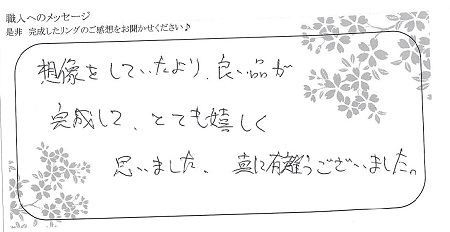 職人へのメッセージ
是非 完成したリングのご感想をお聞かせください♪
想像をしていたより、良い品が
完成して、とても嬉しく
思いました、真に有難うございました。